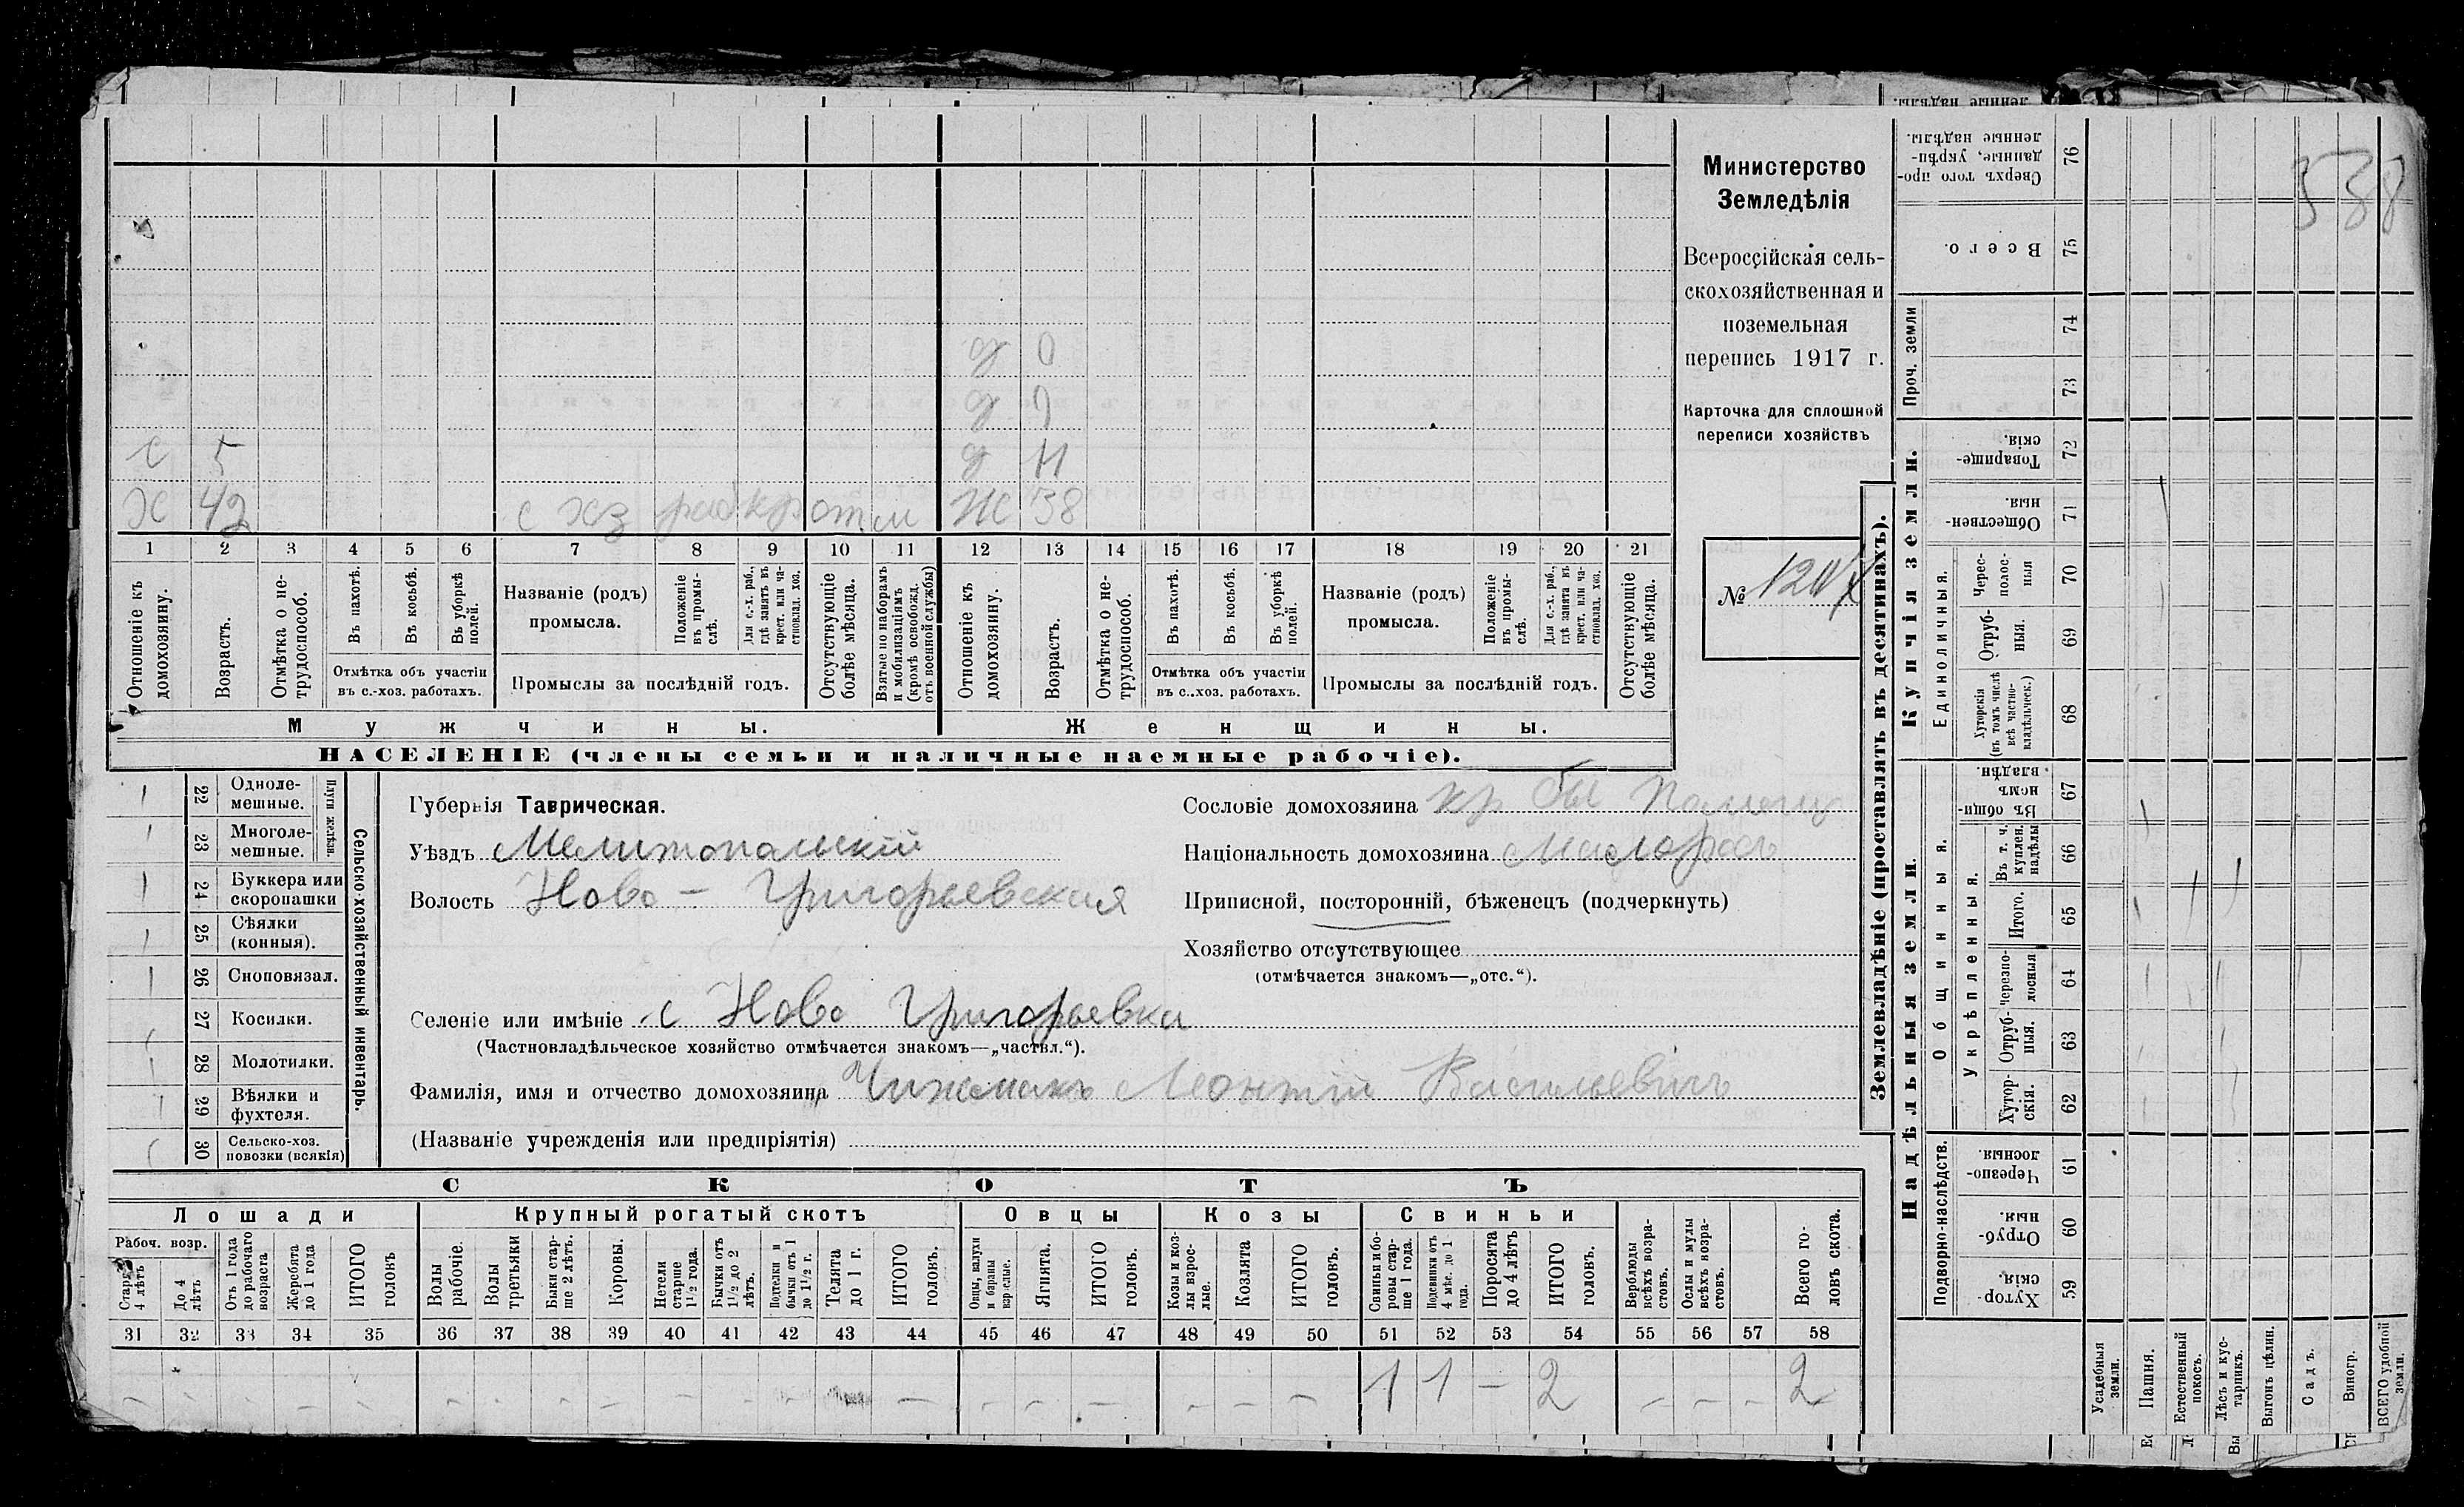 538
Министерство
Земледѣлія
Всероссійская сель-
скохозяйственная и
поземельная
перепись 1917 г.
Карточка для сплошной
переписи хозяйствъ
№ 120
д 0
д 9
с 5 д 11
Х 42 с хз раб кр от м Ж 38
1 2 3 4 5 6 7 8 9 10 11 12 13 14 15 16 17 18 19 20 21
Отношеніе къ домохозяину.
Возрастъ.
Отмѣтка о не-трудоспособ.
Въ пахотѣ.
Въ косьбѣ.
Въ уборкѣ полей.
Отмѣтка объ участіи
въ с.-хоз. работахъ.
Названіе (родъ)
промысла.
Положеніе въ промы-слѣ.
Для с.-х. раб., гдѣ занятъ въ крест. или ча-стновлад. хоз.
Промыслы за послѣдній годъ.
Отсутствующіе болѣе мѣсяца.
Взятые по наборамъ и мобилизаціямъ (кромѣ освобожд. отъ военной службы)
Отношеніе къ домохозяину.
Возрастъ.
Отмѣтка о не-трудоспособ.
Въ пахотѣ.
Въ косьбѣ.
Въ уборкѣ полей.
Отмѣтка объ участіи
въ с.-хоз. работахъ.
Названіе (родъ)
промысла.
Положеніе въ промы-слѣ.
Для с.-х. раб., гдѣ занята въ крест. или ча-стновлад. хоз.
Промыслы за послѣдній годъ.
Отсутствующіе болѣе мѣсяца.
Мужчины. Женщины.
НАСЕЛЕНІЕ (члены семьи и наличные наемные рабочіе).
Сельско-хозяйственный инвентарь.
Плуги желѣзн.
22 Одноле-мешные.
23 Многоле-мешные.
24 Буккера или скоропашки
25 Сѣялки (конныя).
26 Сноповязал.
27 Косилки.
28 Молотилки.
29 Вѣялки и фухтеля.
30 Сельско-хоз. повозки (всякія)
Губернія Таврическая.
Уѣздъ Мелитопольскій
Волость Ново-Григорьевская
Селеніе или имѣніе с Ново Григорьевка
(Частновладѣльческое хозяйство отмѣчается знакомъ—„частвл.“).
Фамилія, имя и отчество домохозяина Чижмакъ Леонтій Васильевичъ
(Названіе учрежденія или предпріятія)
Сословіе домохозяина кр
Національность домохозяина Малоросъ
Приписной, посторонній, бѣженецъ (подчеркнуть)
Хозяйство отсутствующее
(отмѣчается знакомъ—„отс.“).
СКОТЪ
Лошади Крупный рогатый скотъ Овцы Козы Свиньи
Рабоч. возр.
Старше 4 лѣтъ
До 4 лѣтъ
Отъ 1 года до рабочаго возраста
Жеребята до 1 года
ИТОГО головъ
Волы рабочіе.
Волы третьяки
Быки стар-ше 2 лѣтъ.
Коровы.
Нетели старше 1½ года.
Бычки отъ 1½ до 2 лѣтъ.
Подтелки и бычки отъ 1 до 1½ г.
Телята до 1 г.
ИТОГО головъ.
Овцы, валухи и бараны взрослые.
Ягнята.
ИТОГО головъ.
Козы и коз-лы взрос-лые.
Козлята
ИТОГО головъ.
Свиньи и бо-ровы стар-ше 1 года.
Подсвинки отъ 4 мѣс. до 1 года.
Поросята до 4 лѣтъ
ИТОГО головъ.
Верблюды всѣхъ возра-стовъ.
Ослы и мулы всѣхъ возра-стовъ.
Всего го-ловъ скота.
31 32 33 34 35 36 37 38 39 40 41 42 43 44 45 46 47 48 49 50 51 52 53 54 55 56 57 58
– – – – – – – – – – – – – – – – – – – 1 1 – 2 – – – 2
Землевладѣніе (проставлять въ десятинахъ).
Надѣльныя земли.
Купчія земли.
Проч. земли
Подворно-наслѣдств.
Общинныя.
Укрѣпленныя.
Единоличныя.
76 Сверхъ того про-данные, укрѣп-ленные надѣлы.
75 Всего.
74
73
72 Товарище-скія.
71 Обществен-ныя.
70 Черес-полос-ныя
69 Отруб-ныя.
68 Хуторскія (въ томъ числѣ всѣ частно-владѣльческ.)
67 Въ общи-номъ владѣн.
66 Въ т. ч. куплен. надѣлы
65 Итого.
64 Черезпо-лосныя
63 Отруб-ныя.
62 Хутор-скія.
61 Черезпо-лосныя.
60 Отруб-ныя.
59 Хутор-скія.
Усадебныя земли.
Пашня.
Естественный покосъ.
Лѣсъ и кус-тарникъ.
Выгонъ цѣлин.
Садъ.
Виногр.
ВСЕГО удобной земли.